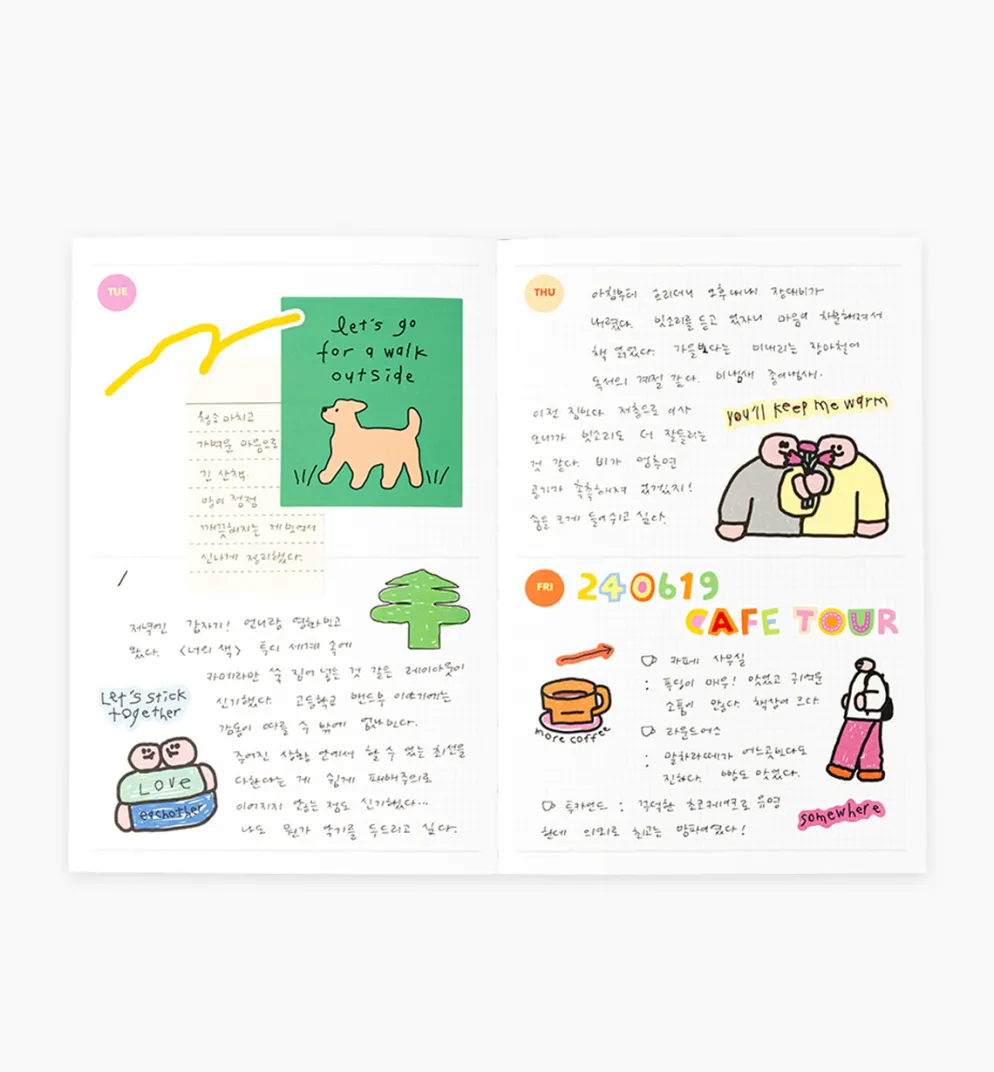 TUE
let's go
for a walk
outside
청소 마치고
가벼운 마음으로
긴 산책.
밤이 정점
깨끗해지는 게 보여서
신나게 정리했다.
저녁엔 갑자기! 언니랑 영화보고
왔다. <너의 색> 투디 세계 속에
카메라만 쑥 집어넣는 것 같은 레이아웃이
신기했다. 고등학교 밴드부 이야기에는
감동이 따를 수 밖에 없나보다.
주어진 상황 안에서 할 수 있는 최선을
다한다는 게 쉽게 패배주의로
이어지지 않는 점도 신기했다...
나도 뭔가 악기를 두드리고 싶다.
Let's stick
together
LOVE
eachother
THU
아침부터 흐리더니 오후내내 장대비가
내렸다. 빗소리를 듣고 있자니 마음이 차분해져서
책 읽었다. 가을보다는 비내리는 장마철이
독서의 계절 같다. 비냄새 종이냄새.
이전 집보다 저층으로 이사
오니까 빗소리도 더 잘들리는
것 같다. 비가 멈추면
공기가 촉촉해져 있겠지!
숨을 크게 들이쉬고 싶다.
you'll keep me warm
FRI
240619
CAFE TOUR
카페 사무실
: 푸딩이 매우! 맛있고 귀여운
소품이 많다. 책상이 크다.
라운드어스
: 말차라떼가 어느곳보다도
진하다. 빵도 맛있다.
투카인드 : 꾸덕한 초코케이크로 유명
한데 의외로 최고는 말파이였다!
more coffee
somewhere